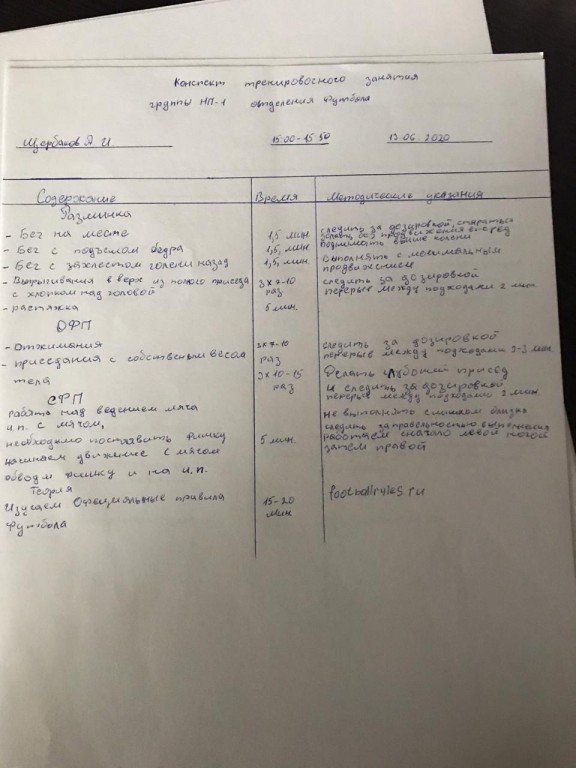 Конспект тренировочного занятия
группы НП-1 отделения Футбола
Щербаков А. И. 15:00-15:50 13.06.2020
Содержание Время Методические указания
Разминка
- Бег на месте 1,5 мин следить за дозировкой, стараться
делать без продвижения вперед
- Бег с подъемом бедра 1,5, мин Поднимать выше колени
- Бег с захлестом голени назад 1,5, мин. Выполнять с минимальным
продвижением
- Выпрыгивания в верх из полного приседа 3х7-10 следить за дозировкой
с хлопком над головой раз перерыв между подходами 2 мин.
- растяжка 5 мин.
ОФП
- Отжимания 2х7-10 следить за дозировкой
раз перерыв между подходами 2-3 мин.
- приседания с собственым весом 3х10-15 Делать глубокий присед
тела раз и следить за дозировкой
перерыв между подходами 2 мин.
СФП
работа над ведением мяча не выполнять слишком близко
и.п. с мячом, следить за правельностью выполнения
необходимо поставить фишку 5 мин. работаем сначало левой ногой
начинаем движение с мячом затем правой
обводим фишку и на и.п.
Теория
Изучаем Официальные правила 15-20 footballrules.ru
футбола мин